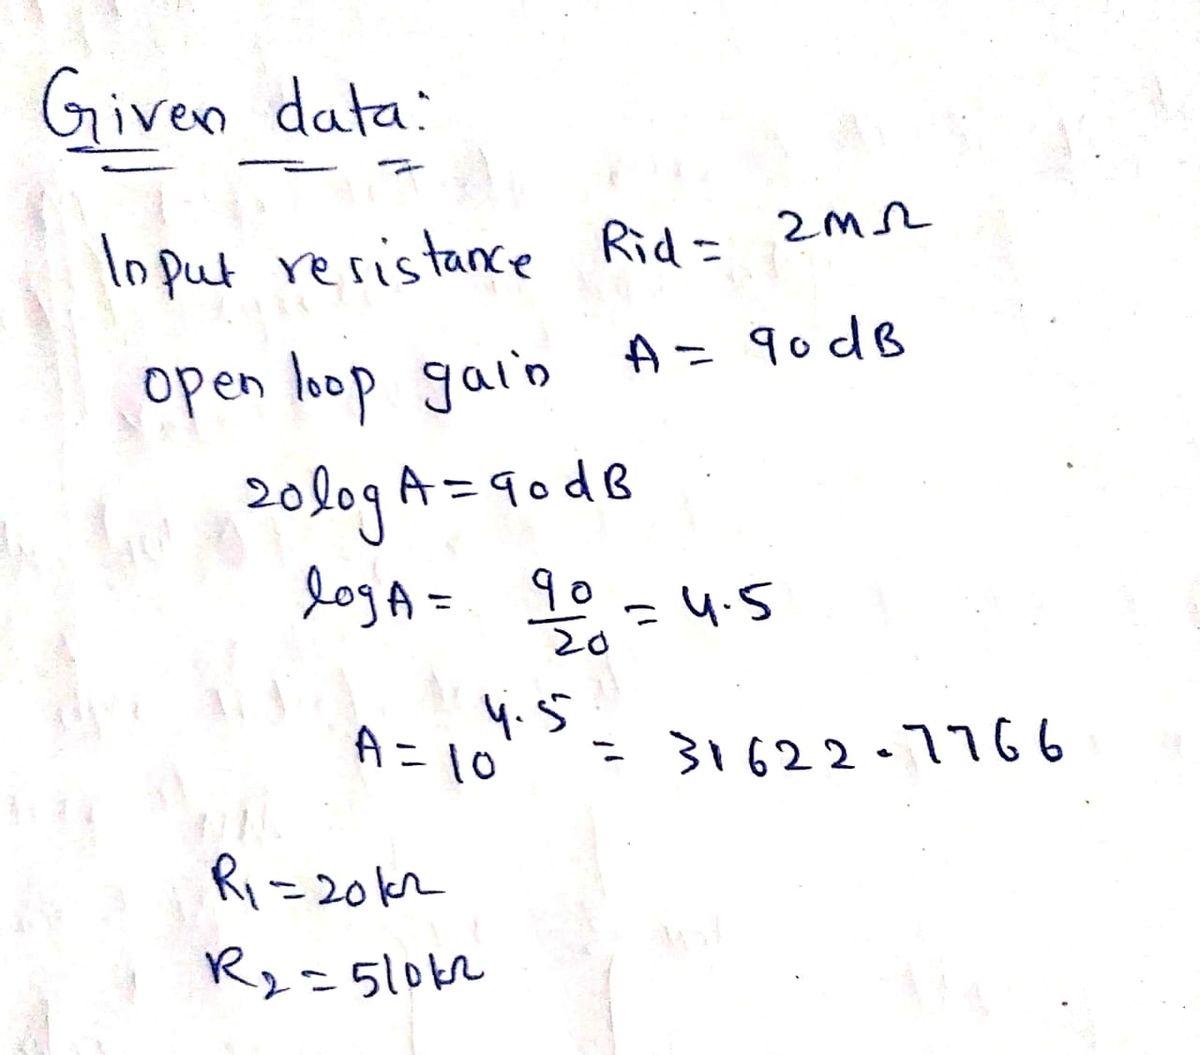 Given data:
Input resistance Rid = 2MΩ
open loop gain A = 90dB
20log A = 90dB
log A = 90/20 = 4.5
A = 10^4.5 = 31622.7766
R₁ = 20kΩ
R₂ = 510kΩ